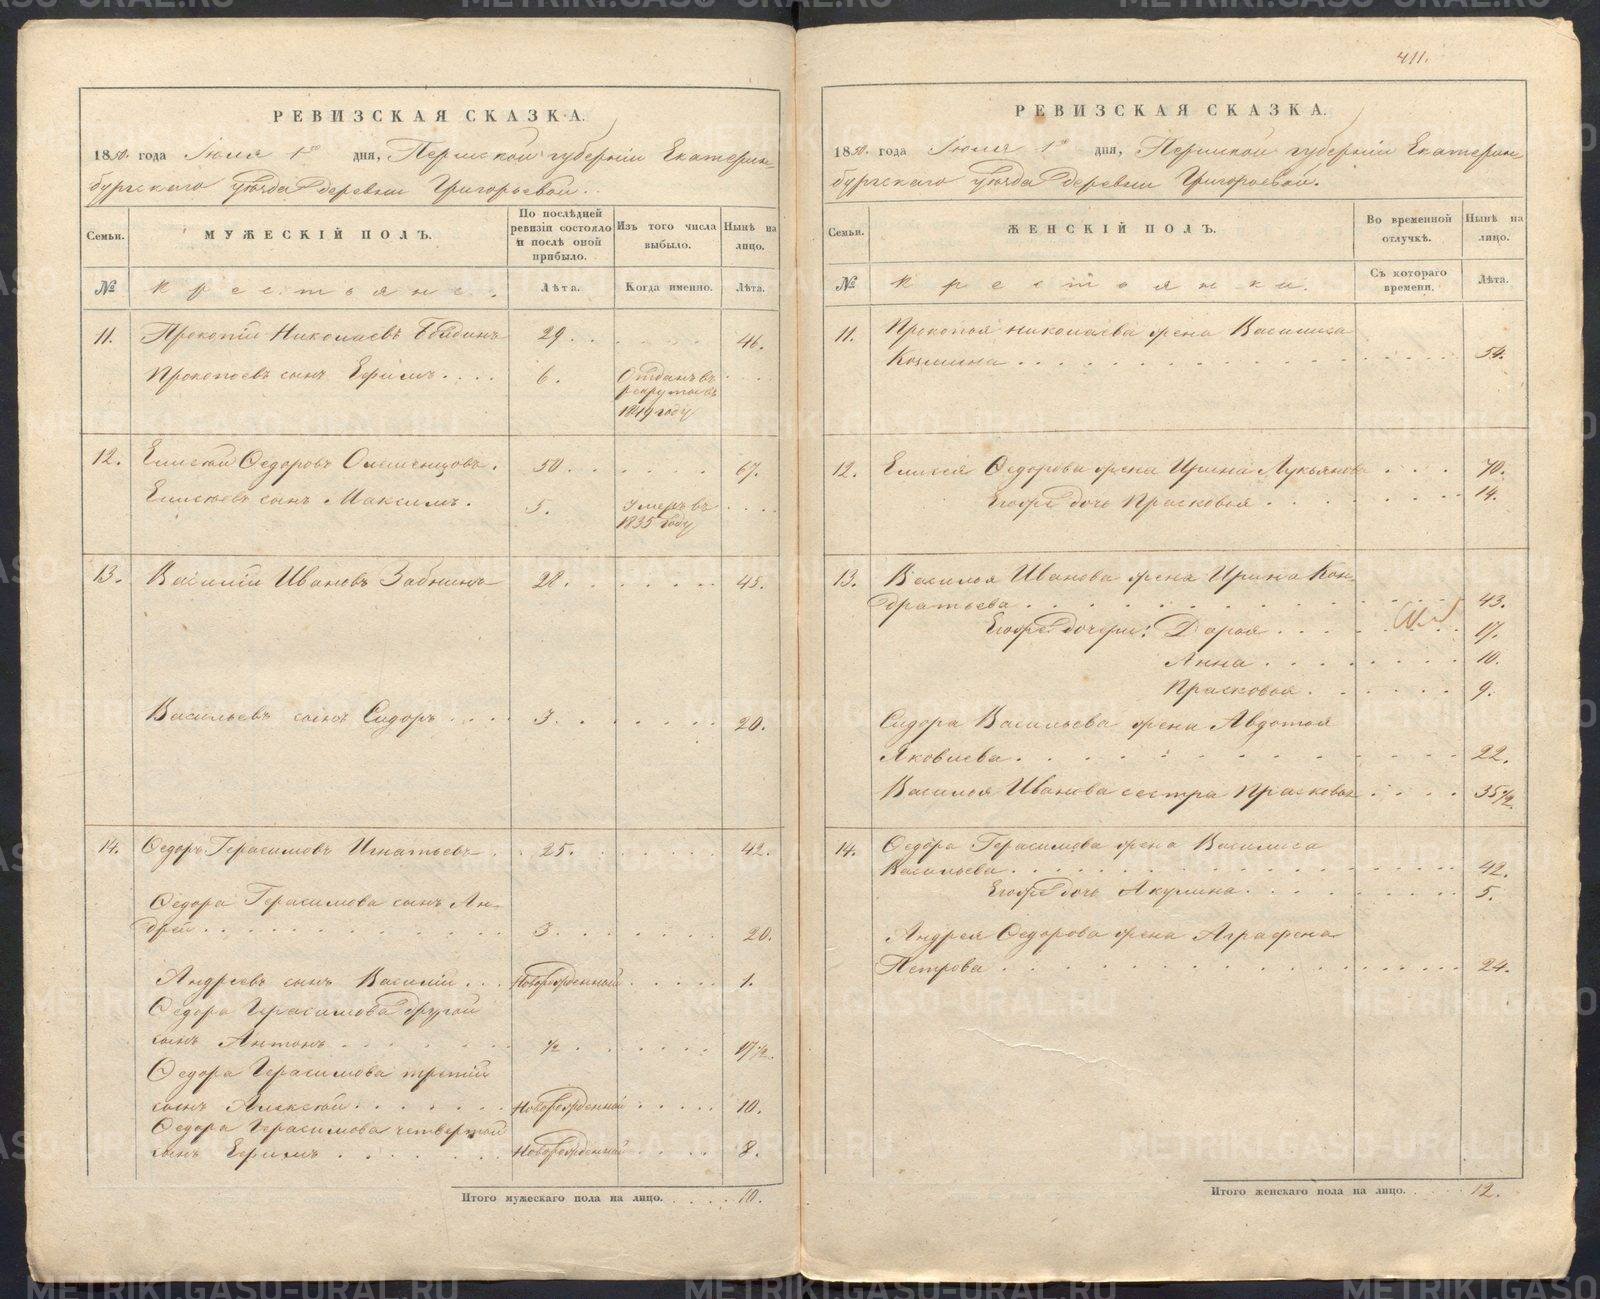 411.
РЕВИЗСКАЯ СКАЗКА.
1850. года Іюля 1го дня, Пермской губерніи Екатерин-
бургскаго уѣзда деревни Григорьевой.
Семьи.
МУЖЕСКІЙ ПОЛЪ.
По послѣдней ревизіи состояло и послѣ оной прибыло.
Изъ того числа выбыло.
Нынѣ на лицо.
№ Крестьяне. Лѣта. Когда именно. Лѣта.
11. Прокопій Николаевъ 29. 46.
Прокопьевъ сынъ Ефимъ 6. Отданъ въ
рекруты въ
1849 году
12. Елисей Ѳедоровъ 50. 67.
Елисеевъ сынъ Максимъ. 5. Умеръ въ
1835 году
13. Василій Ивановъ Забнинъ 28. 45.
Васильевъ сынъ Сидоръ 3. 20.
14. Ѳедоръ Герасимовъ Игнатьевъ 25. 42.
Ѳедора Герасимова сынъ Ан-
дрей 3. 20.
Андреевъ сынъ Василій Новорожденный 1.
Ѳедора Герасимова другой
сынъ Антонъ ½ 17½.
Ѳедора Герасимова третій
сынъ Алексѣй Новорожденный 10.
Ѳедора Герасимова четвертой
сынъ Ефимъ Новорожденный 8.
Итого мужескаго пола на лицо. 10.
РЕВИЗСКАЯ СКАЗКА.
1850. года Іюля 1го дня, Пермской губерніи Екатерин-
бургскаго уѣзда деревни Григорьевой.
Семьи.
ЖЕНСКІЙ ПОЛЪ.
Во временной отлучкѣ.
Нынѣ на лицо.
№ Крестьянки. Съ котораго времени. Лѣта.
11. Прокопья Николаева жена Василиса
Козмина 54.
12. Елисея Ѳедорова жена Ирина Лукьянова 70.
Егожъ дочь Прасковья 14.
13. Василья Иванова жена Ирина Кон-
дратьева 43.
Егожъ дочери: Дарья 17.
Анна 10.
Прасковья 9.
Сидора Васильева жена Авдотья
Яковлева 22.
Василья Иванова сестра Прасковья 35½.
14. Ѳедора Герасимова жена Василиса
Васильева 42.
Егожъ дочь Акулина 5.
Андрея Ѳедорова жена Аграфена
Петрова 24.
Итого женскаго пола на лицо. 12.
METRIKI.GASO-URAL.RU